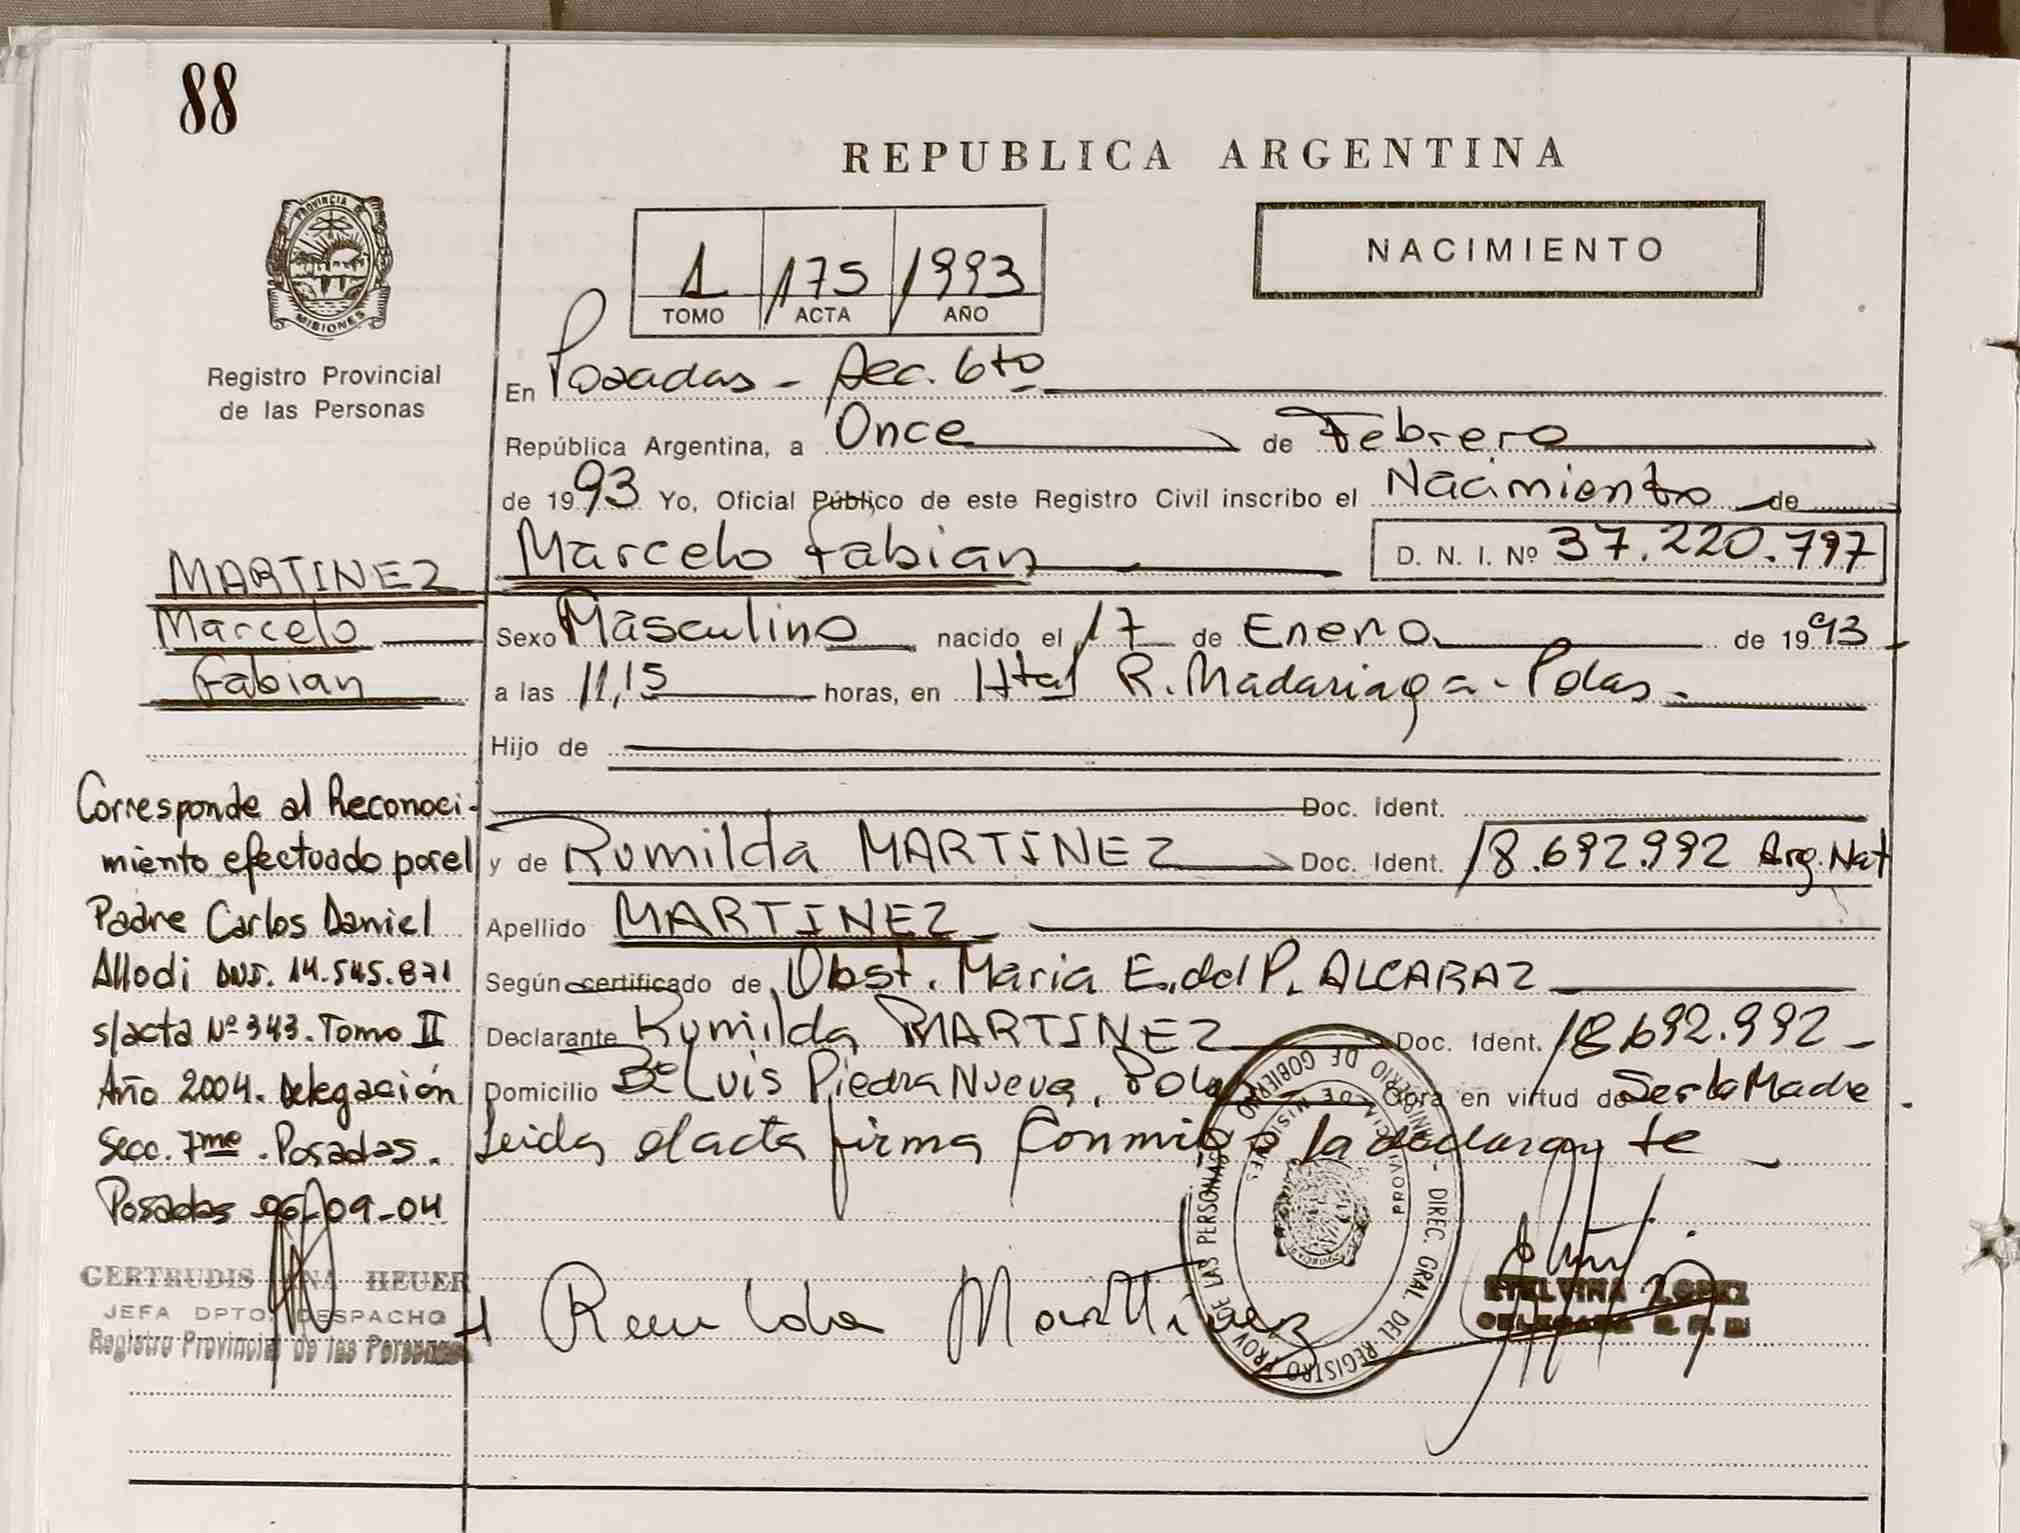 88
REPUBLICA ARGENTINA
PROVINCIA DE
MISIONES
NACIMIENTO
1 175 1993
TOMO ACTA AÑO
Registro Provincial
de las Personas
En Posadas - Sec. 6to
República Argentina, a Once de Febrero
de 1993 Yo, Oficial Público de este Registro Civil inscribo el Nacimiento de
Marcelo Fabian D. N. I. Nº 37.220.797
MARTINEZ
Marcelo
Fabian
Sexo Masculino nacido el 17 de Enero de 1993
a las 11,15 horas, en Htal R. Madariaga - Pdas -
Hijo de
Doc. Ident.
y de Rumilda MARTINEZ Doc. Ident. 18.692.992 Arg. Nat
Apellido MARTINEZ
Según certificado de Obst. Maria E. del P. ALCARAZ
Declarante Rumilda MARTINEZ Doc. Ident. 18.692.992 -
Domicilio Bº Luis Piedra Nueva, Pdas - Obra en virtud de Ser la Madre
Leida el acta firma conmigo la declarante -
Corresponde al Reconoci-
miento efectuado por el
Padre Carlos Daniel
Allodi DNI. 14.545.871
s/acta Nº 343. Tomo II
Año 2004. Delegación
Secc. 7me . Posadas.
Posadas 06-09-04
GERTRUDIS ANA HEUER
JEFA DPTO. DESPACHO
Registro Provincial de las Personas
Rumilda Martinez
MINISTERIO DE GOBIERNO - DIREC. GRAL. DEL REGISTRO PROV. DE LAS PERSONAS
PROVINCIA DE MISIONES
ETELVINA LOPEZ